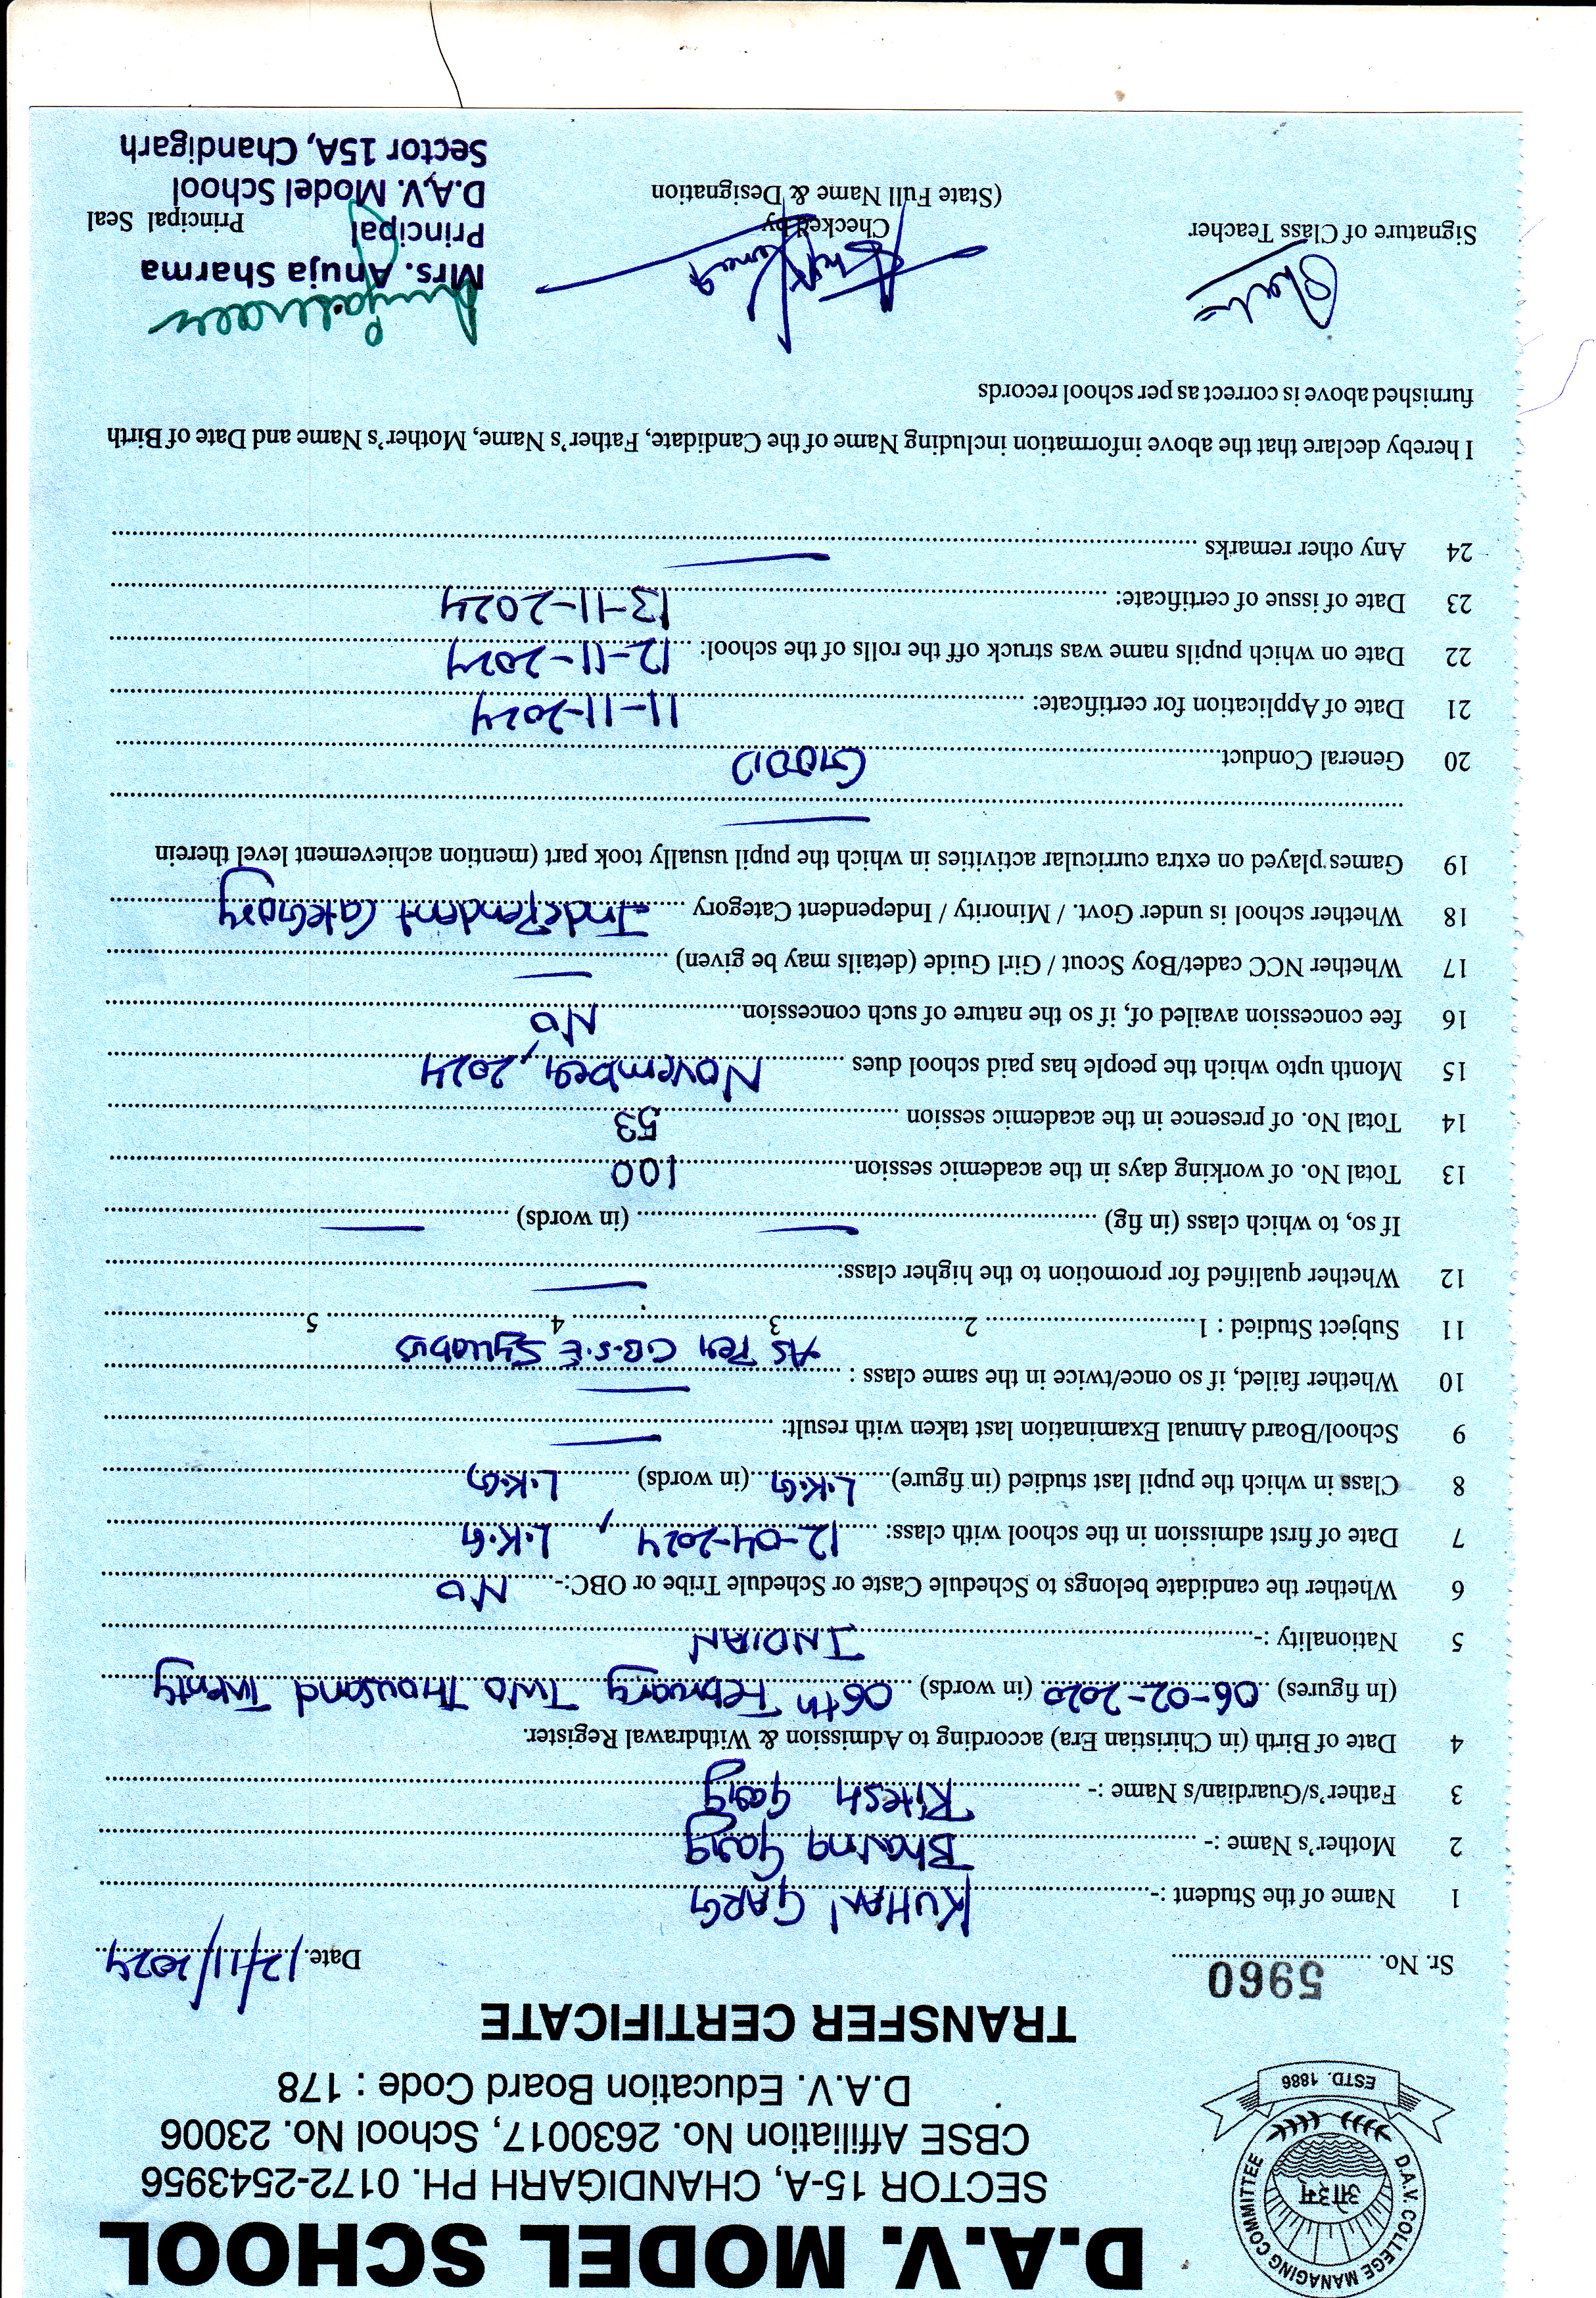 D.A.V. MODEL SCHOOL
SECTOR 15-A, CHANDIGARH PH. 0172-2543956
CBSE Affiliation No. 2630017, School No. 23006
D.A.V. Education Board Code : 178
D.A.V. COLLEGE MANAGING COMMITTEE
ओ३म्
ESTD. 1886
TRANSFER CERTIFICATE
Sr. No. 5960 Date. 12/11/2024
1 Name of the Student :- KUHAN GARG
2 Mother's Name :- Bhavna Garg
3 Father's/Guardian/s Name :- Ritesh Garg
4 Date of Birth (in Chiristian Era) according to Admission & Withdrawal Register.
(In figures) 06-02-2020 (in words) 06th February Two Thousand Twenty
5 Nationality :- INDIAN
6 Whether the candidate belongs to Schedule Caste or Schedule Tribe or OBC:- NO
7 Date of first admission in the school with class: 12-04-2024, L.K.G
8 Class in which the pupil last studied (in figure) L.K.G (in words) L.K.G
9 School/Board Annual Examination last taken with result: —
10 Whether failed, if so once/twice in the same class : —
11 Subject Studied : 1 2 3 4 5 As Per C.B.S.E Syllabus
12 Whether qualified for promotion to the higher class: —
If so, to which class (in fig) — (in words) —
13 Total No. of working days in the academic session 100
14 Total No. of presence in the academic session 53
15 Month upto which the people has paid school dues November, 2024
16 fee concession availed of, if so the nature of such concession NO
17 Whether NCC cadet/Boy Scout / Girl Guide (details may be given) —
18 Whether school is under Govt. / Minority / Independent Category Independent Category
19 Games played on extra curricular activities in which the pupil usually took part (mention achievement level therein
—
20 General Conduct GOOD
21 Date of Application for certificate: 11-11-2024
22 Date on which pupils name was struck off the rolls of the school: 12-11-2024
23 Date of issue of certificate: 13-11-2024
24 Any other remarks —
I hereby declare that the above information including Name of the Candidate, Father's Name, Mother's Name and Date of Birth
furnished above is correct as per school records
Signature of Class Teacher
Checked by
(State Full Name & Designation
Principal Seal
Mrs. Anuja Sharma
Principal
D.A.V. Model School
Sector 15A, Chandigarh